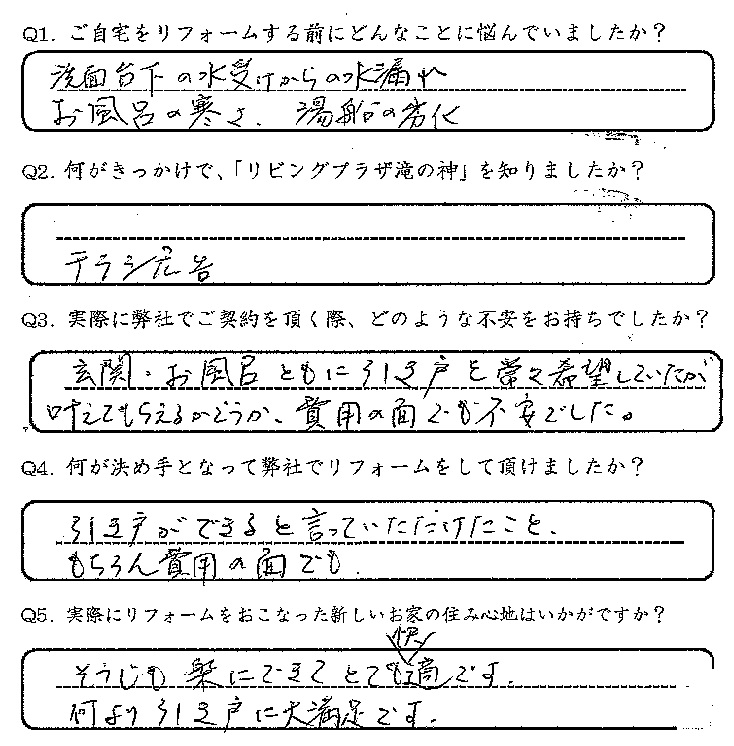 Q1. ご自宅をリフォームする前にどんなことに悩んでいましたか?
洗面台下の水受けからの水漏れ
お風呂の寒さ、湯船の劣化
Q2. 何がきっかけで、「リビングプラザ滝の神」を知りましたか?
チラシ広告
Q3. 実際に弊社でご契約を頂く際、どのような不安をお持ちでしたか?
玄関・お風呂ともに引き戸を常々希望していたが
叶えてもらえるかどうか、費用の面でも不安でした。
Q4. 何が決め手となって弊社でリフォームをして頂けましたか?
引き戸ができると言っていただけたこと、
もちろん費用の面でも.
Q5. 実際にリフォームをおこなった新しいお家の住み心地はいかがですか?
そうじも楽にできてとても快適です.
何より引き戸に大満足です.